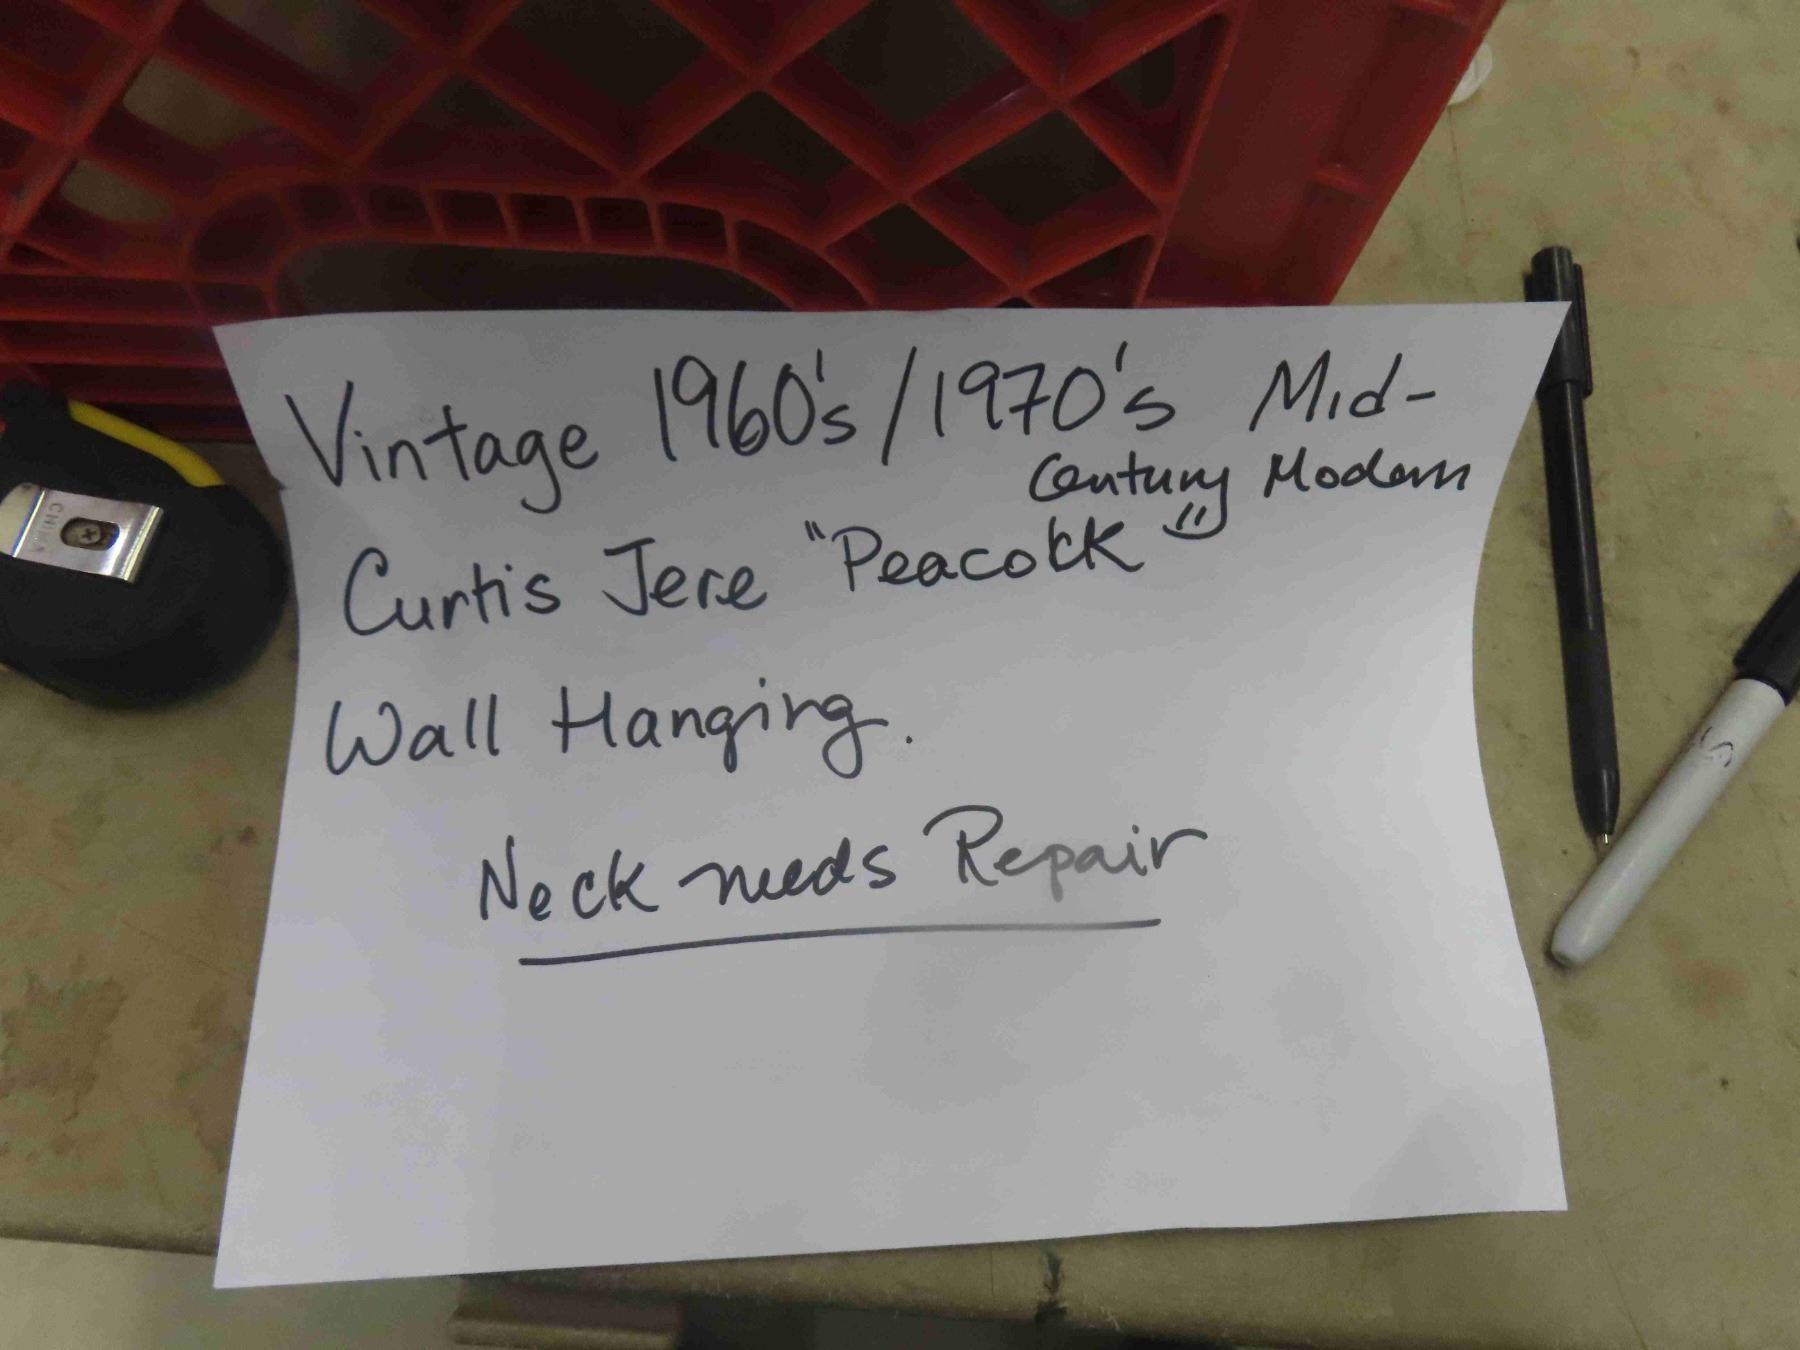 Vintage 1960's/1970's Mid-
Century Modern
Curtis Jere "Peacock"
Wall Hanging.
Neck needs Repair
CHINA
S